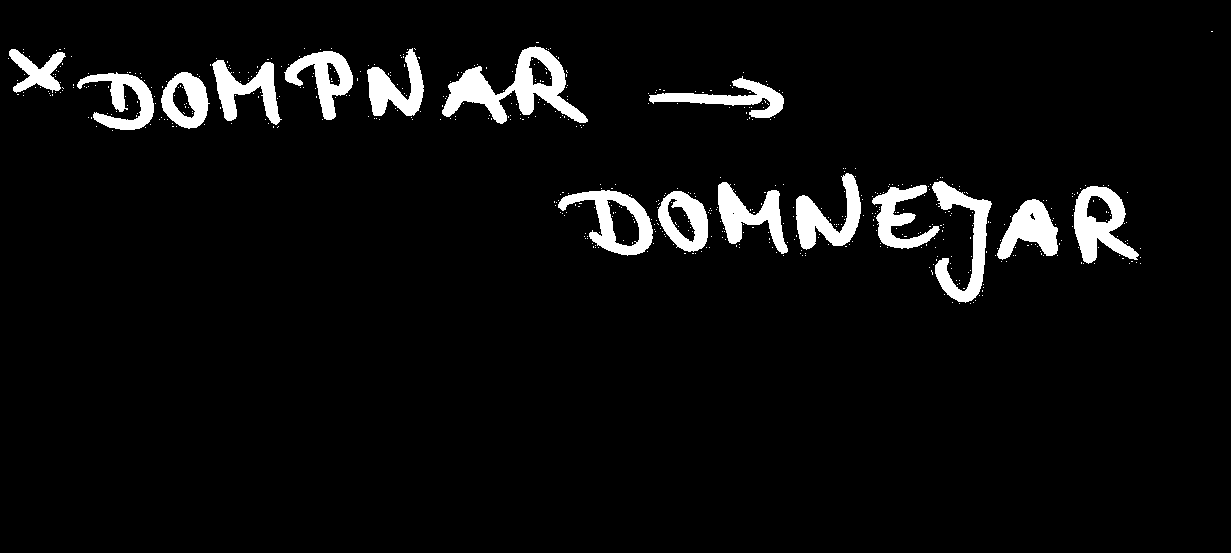 ×DOMPNAR →
DOMNEJAR